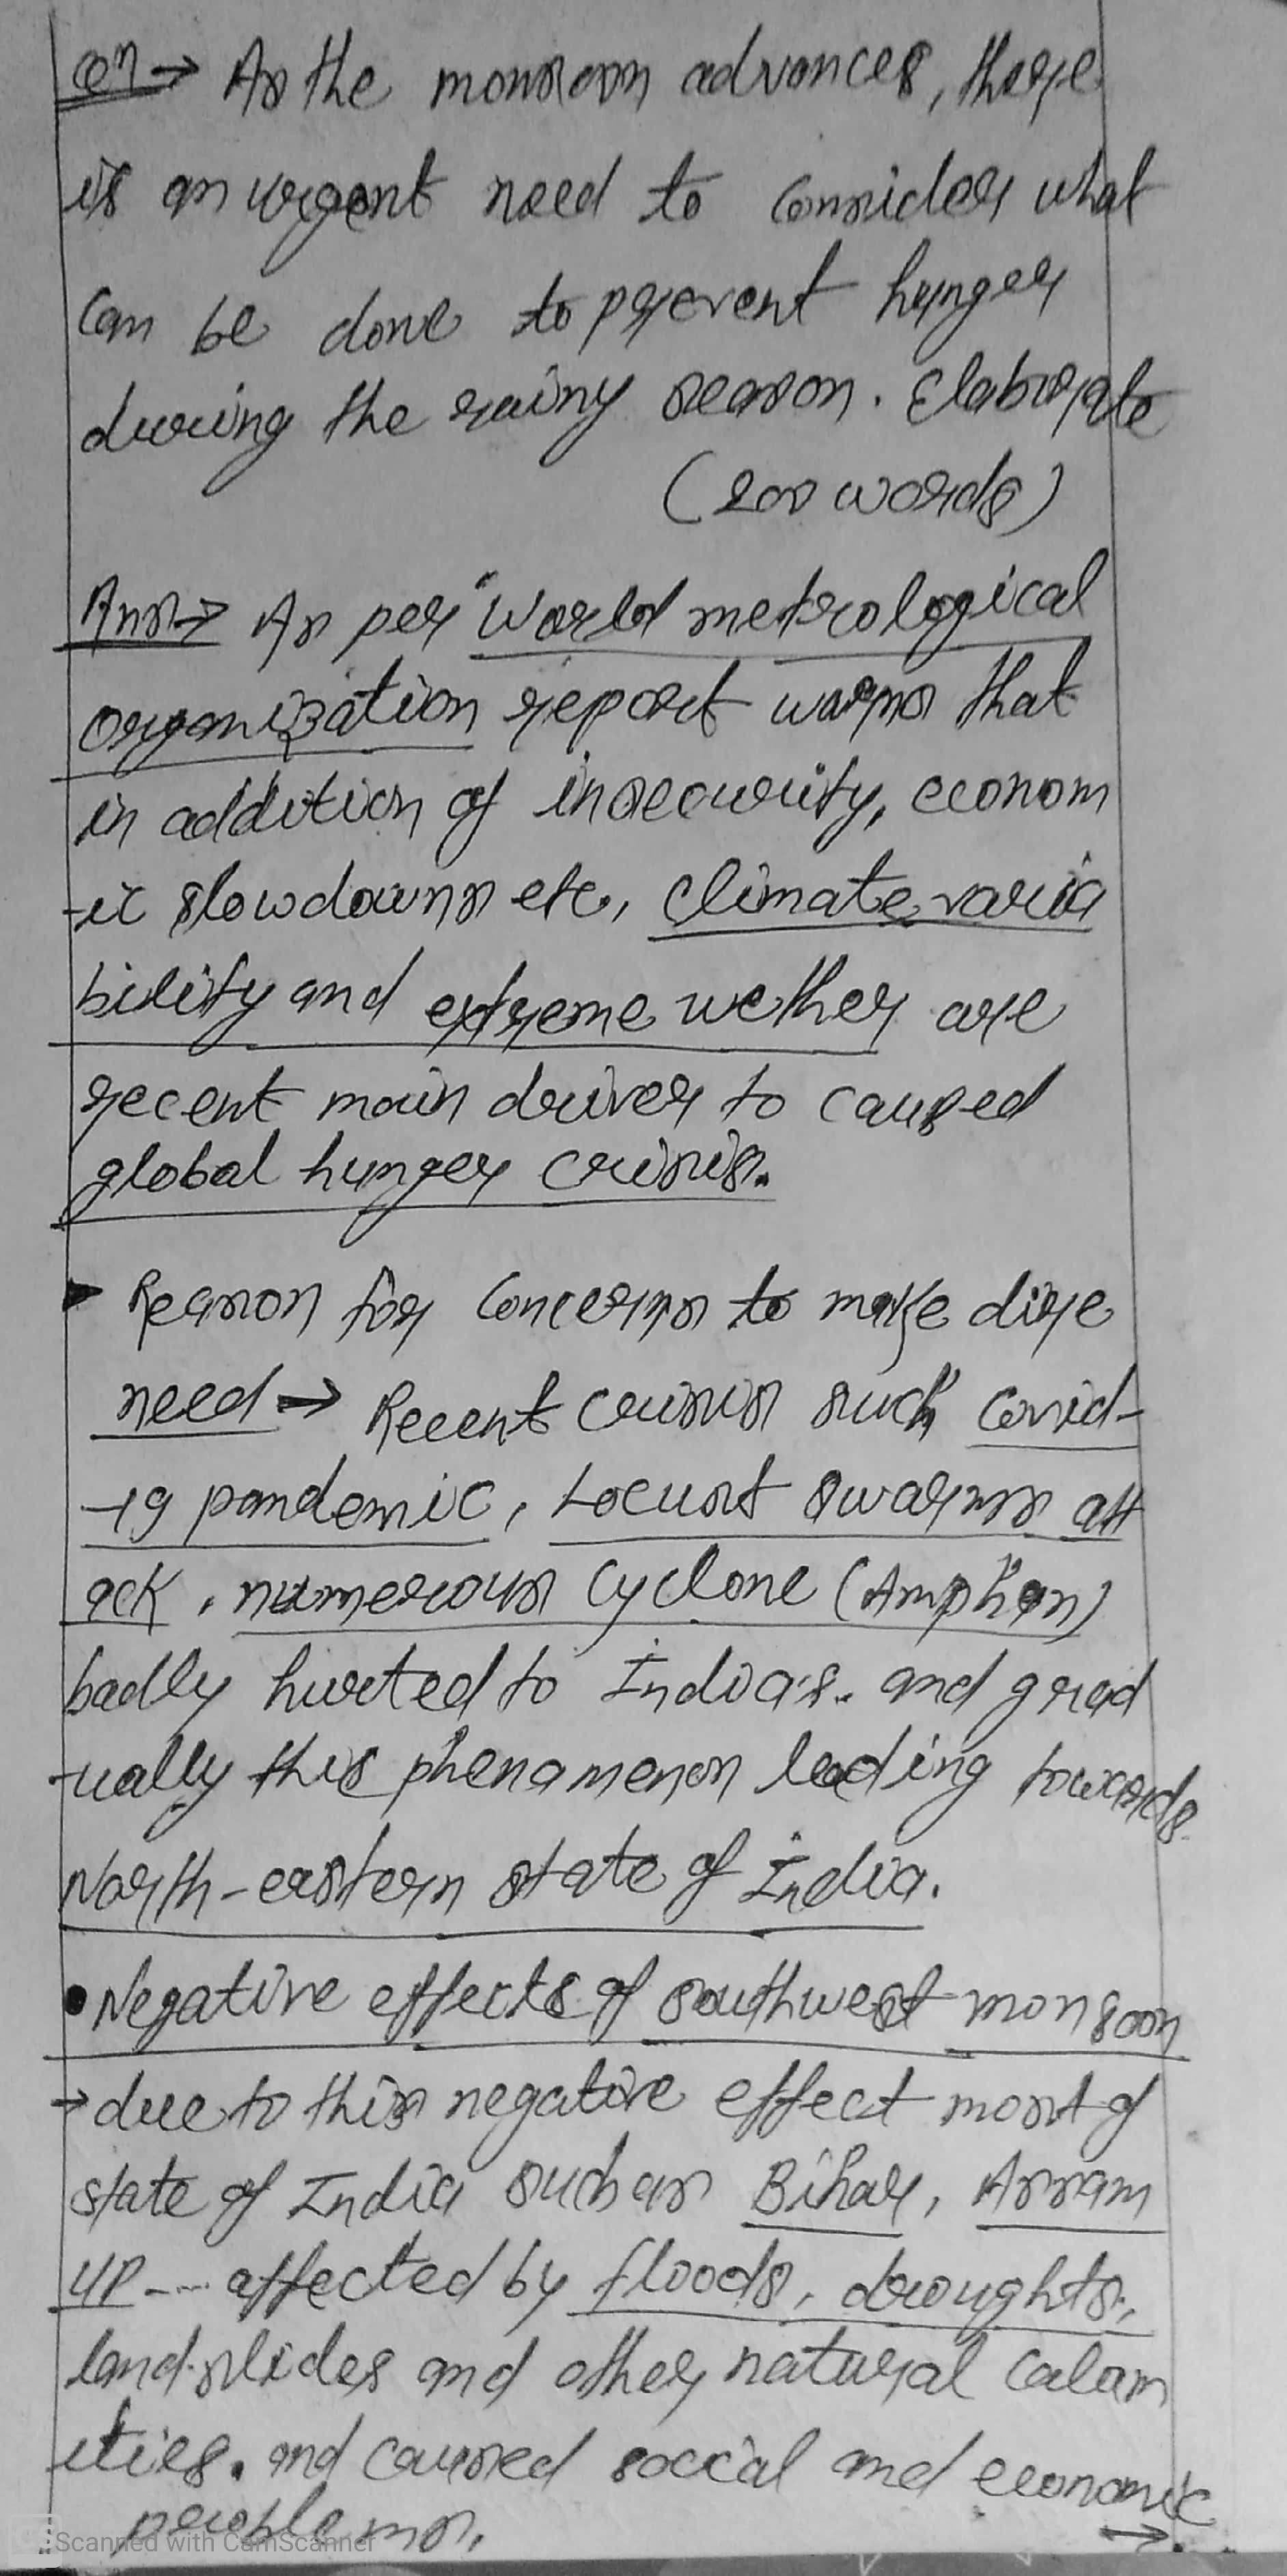 Qn → As the monsoon advances, there
is an urgent need to consider what
can be done to prevent hunger
during the rainy season. Elaborate
(200 words)
Ans → As per "World metrological
organization report warns that
in addition of insecurity, econom
-ic slowdowns etc., climate varia
bility and extreme wether are
recent main driver to caused
global hunger crisis.
Reason for concerns to make dire
need → Recent crisis such Covid-
-19 pandemic, Locust swarms att
ack, numerous cyclone (Amphan)
badly hurted to India's. and grad
-ually this phenamenon leading towards
North-eastern state of India.
• Negative effects of southwest monsoon
→ due to this negative effect most of
state of India such as Bihar, Assam
UP --- affected by floods, droughts,
landslides and other natural calam
ities. and caused social and economic
problems.
→
Scanned with CamScanner